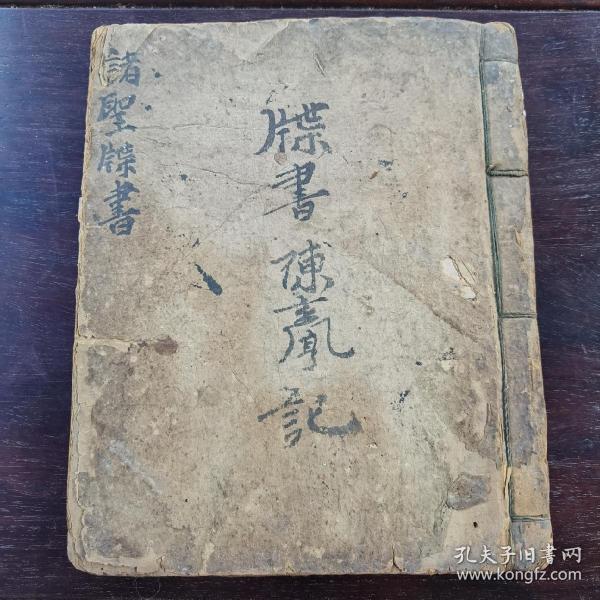 牒書 陳亮記
諸聖牒書
孔夫子旧书网
www.kongfz.com